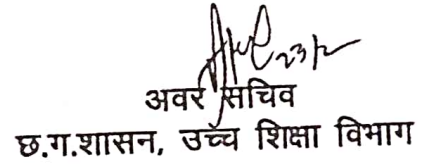 23/2
अवर सचिव
छ.ग.शासन, उच्च शिक्षा विभाग